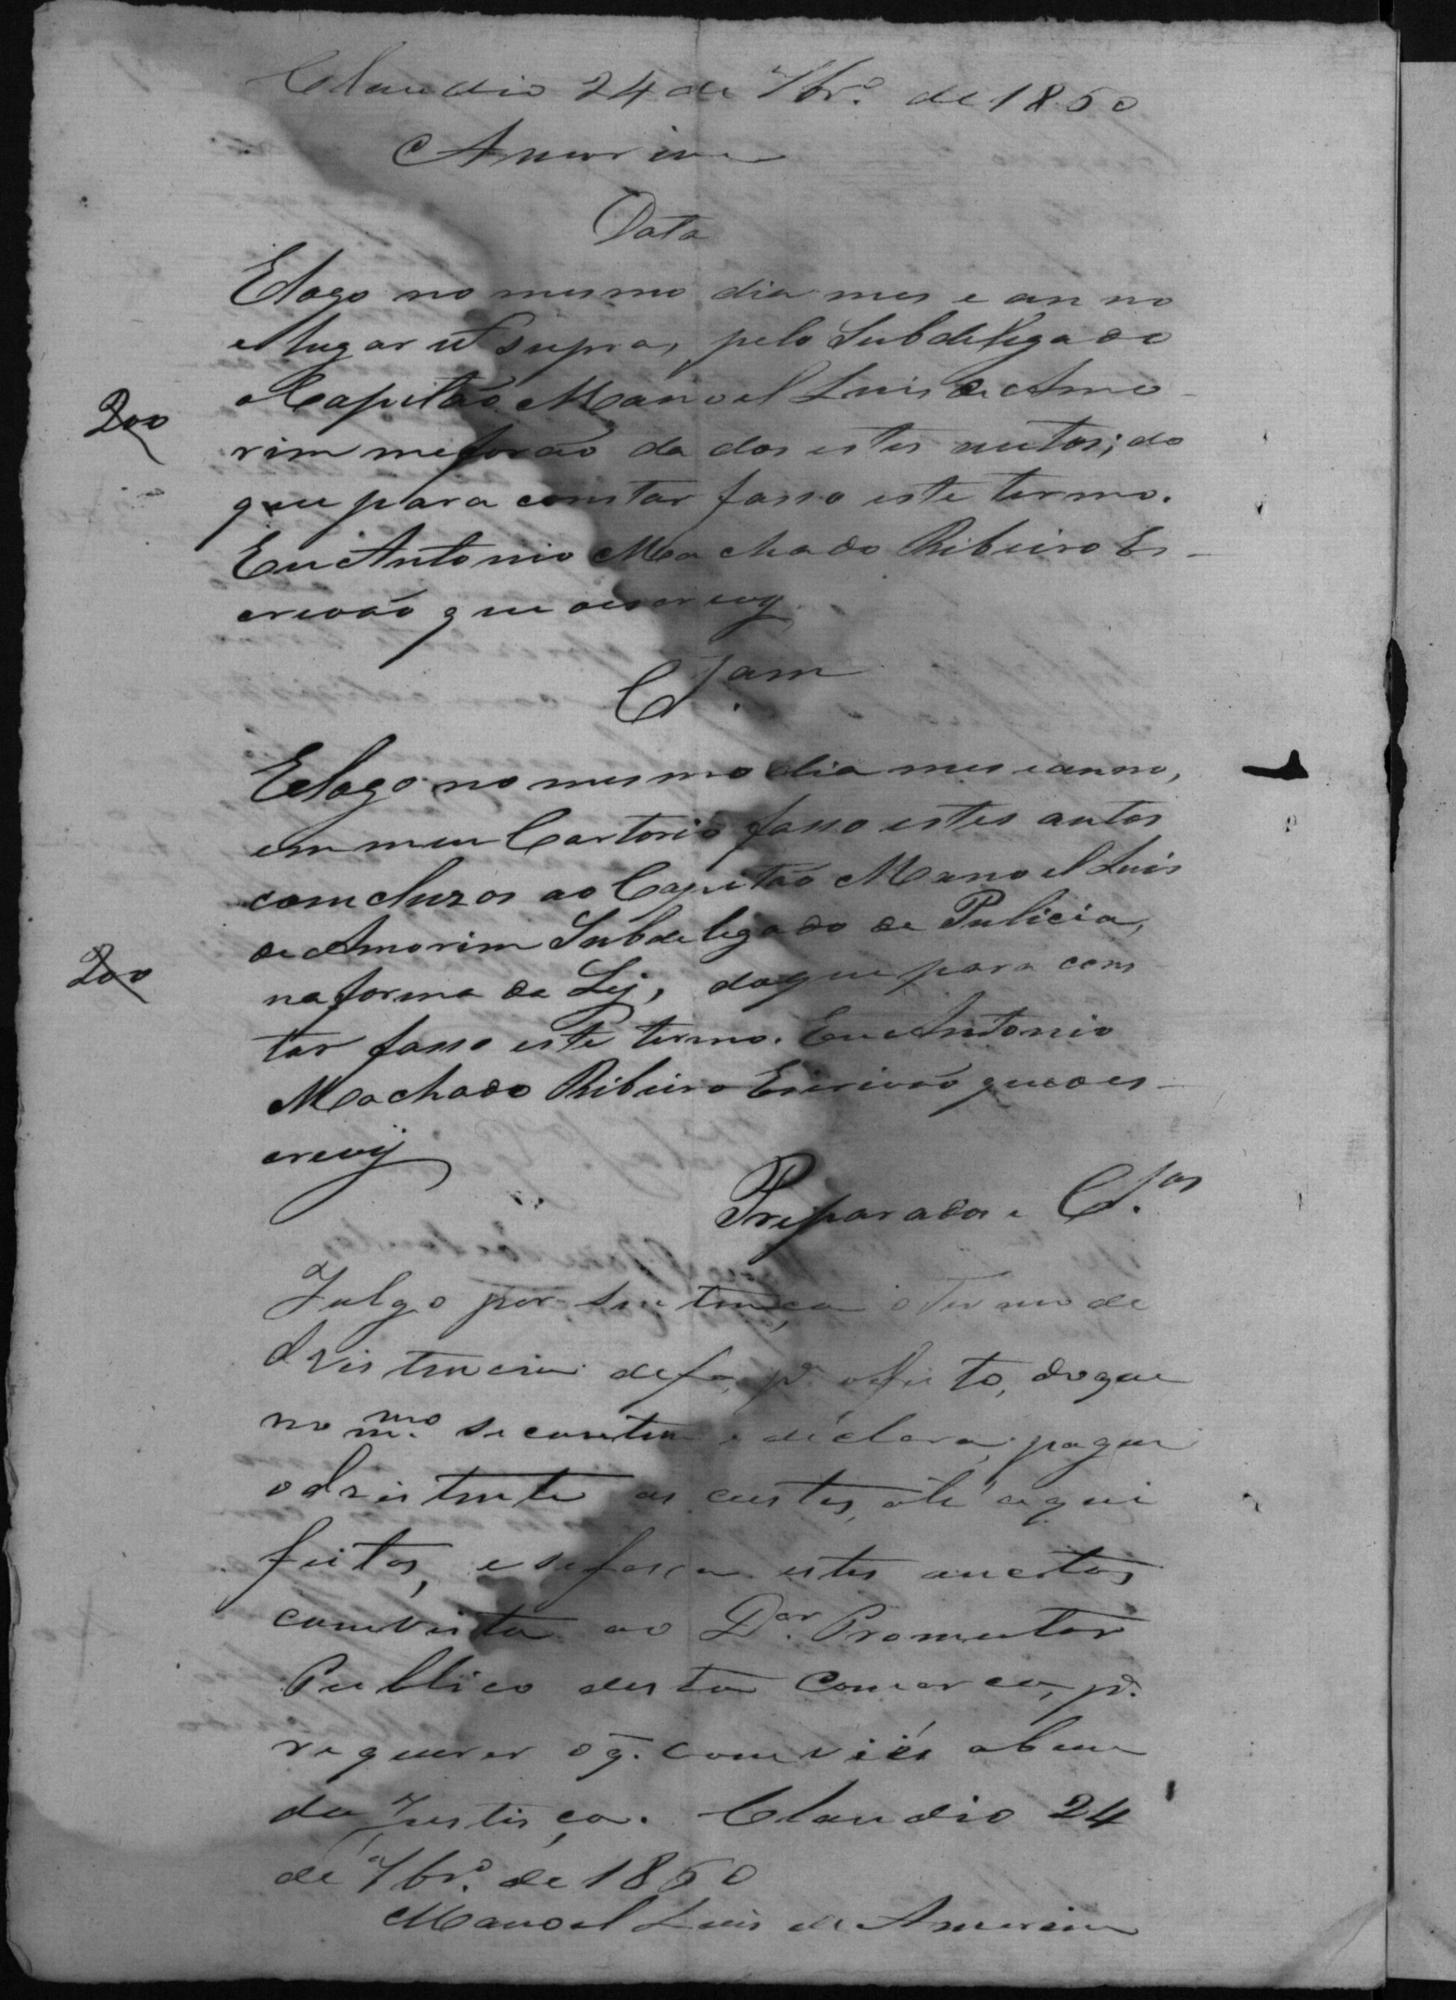 Claudio 24 de 7br.o de 1850
Amorim
Data
E logo no mesmo dia mes e anno
e lugar ut supra, pelo Subdelegado
o Capitão Manoel Luis de Amo-
rim me forão dados estes autos; do
200
que para constar fasso este termo.
Eu Antonio Machado Ribeiro Es-
crivão que o escrevy
Cl.am
E logo no mesmo dia mes e anno,
em meu Cartorio fasso estes autos
comcluzos ao Capitão Manoel Luis
de Amorim Subdelegado de Pulicia,
200
na forma da Ley, do que para cons
tar fasso este termo. Eu Antonio
Machado Ribeiro Escrivão que o es-
crevy
Preparados e Cl.os
Julgo por sentença o Termo de
dezistencia de f p.a o efeito, do que
no m.mo se contem e declara, pague
o dezistente as custas, até aqui
feitas, e se fassa estes auctos
com vista ao D.or Promutor
Publico desta Comarca, p.a
requerer o q. comviér a bem
da Justiça. Claudio 24
de 7br.o de 1850
Manoel Luis de Amorim